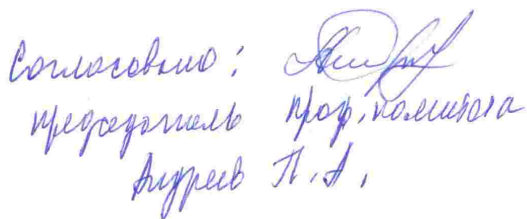 Согласовано:
председатель проф. комитета
Андреев П. А.